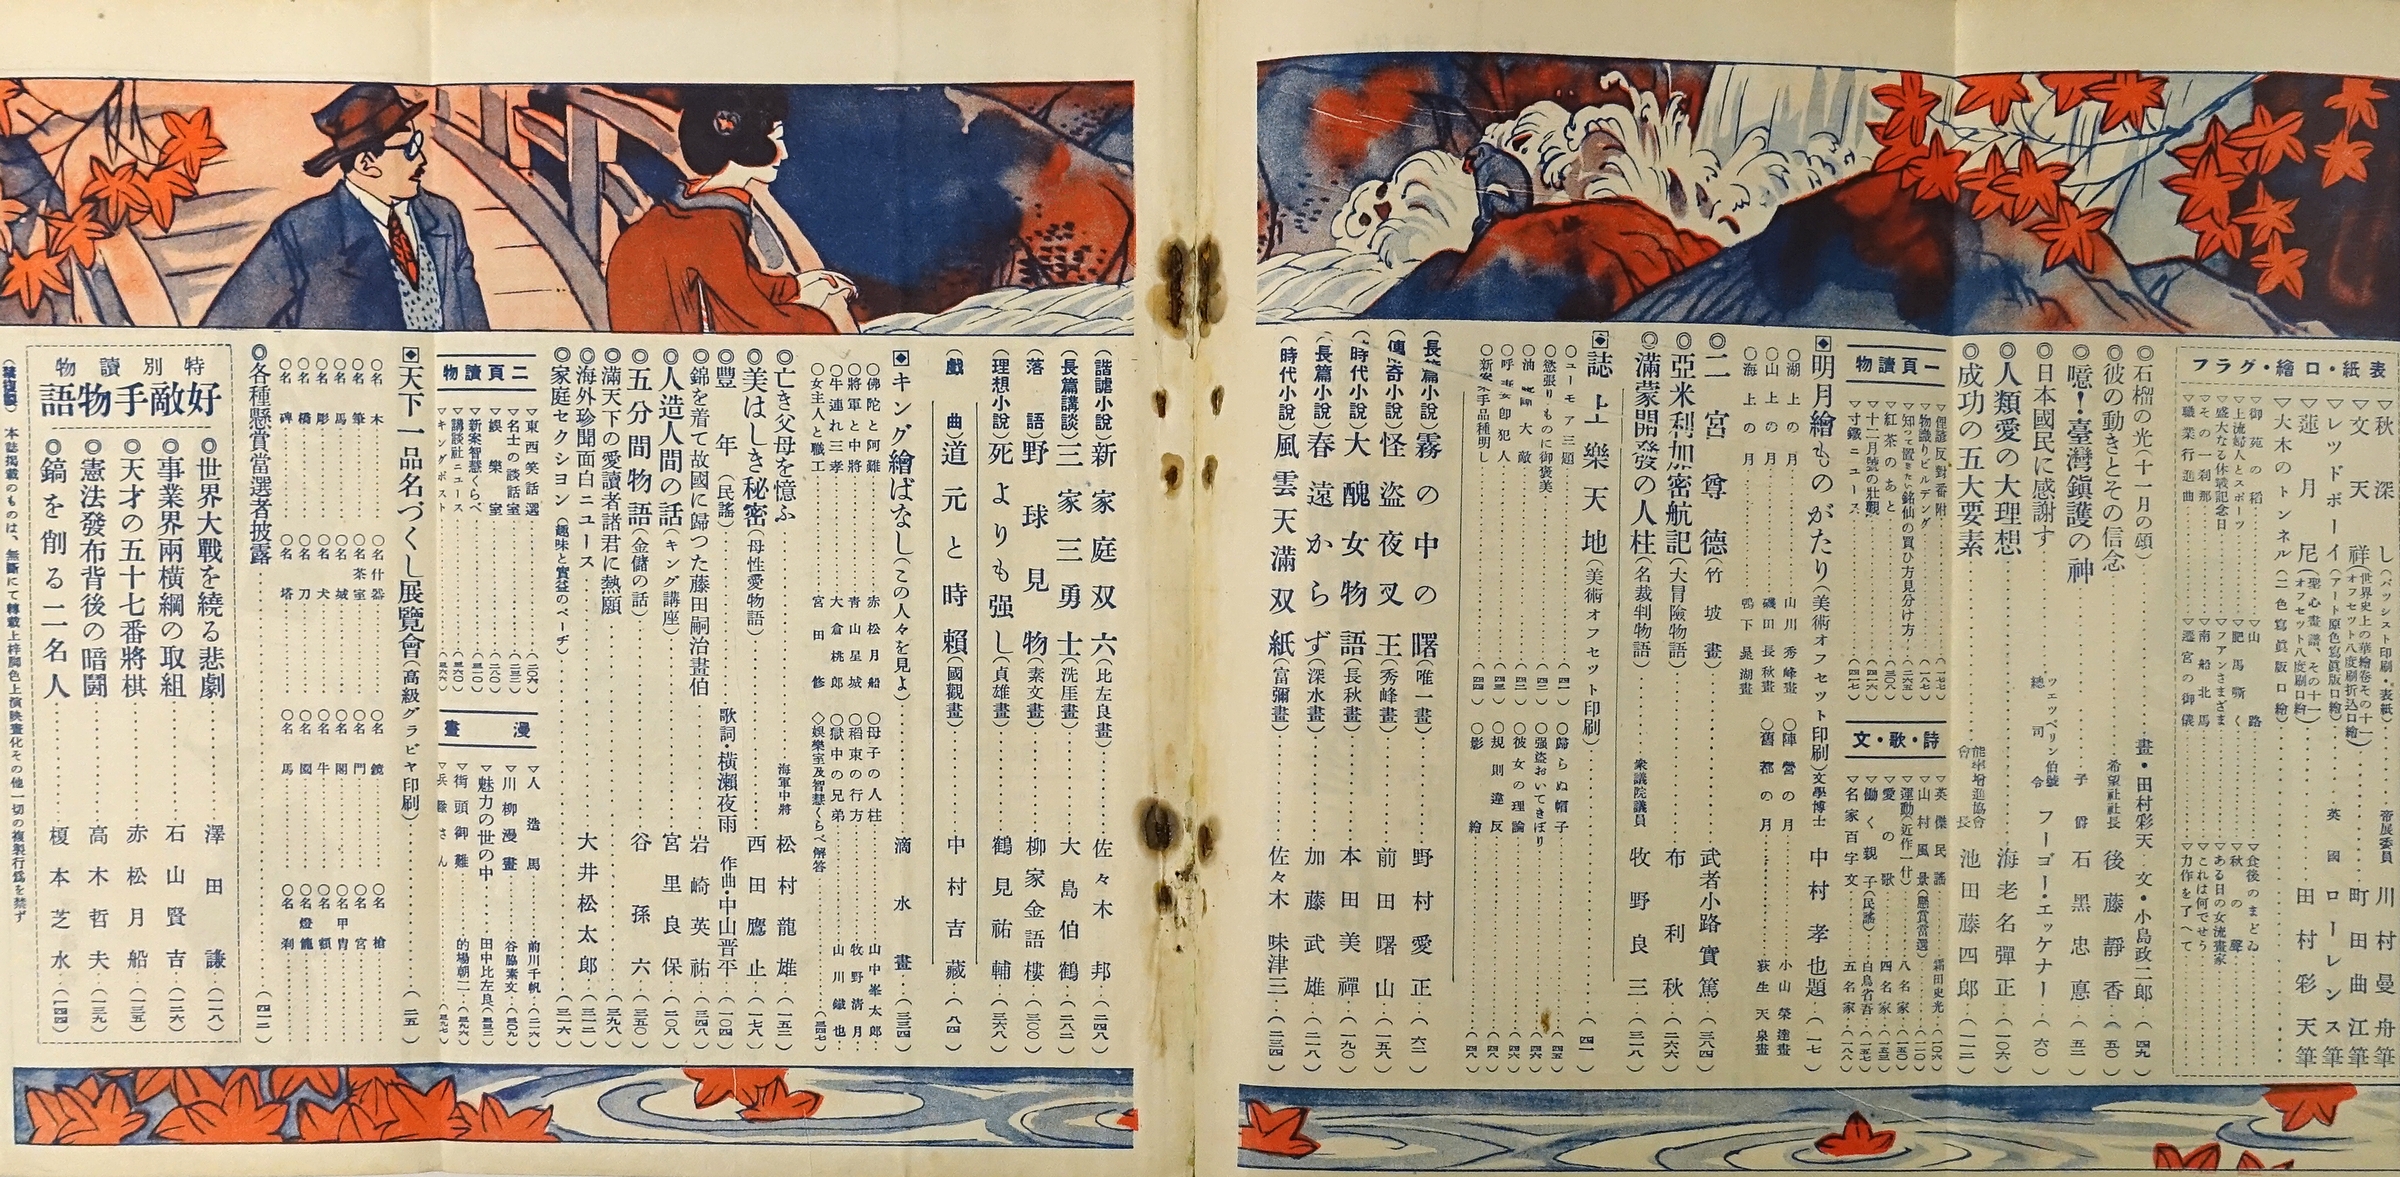 表紙・口繪・グラフ
▽秋深し(パッシスト印刷・表紙)……帝展委員 川村曼舟筆
▽文天祥(世界史上の華繪卷その十一 オフセット八度刷折込口繪)……町田曲江筆
▽レッドボーイ(アート原色寫眞版口繪)……英國 ローレンス筆
▽蓮月尼(聖心畫譜、その十一 オフセット八度刷口繪)……田村彩天筆
▽大木のトンネル(二色寫眞版口繪)
▽御苑の稻……▽山路……▽食後のまどゐ
▽上流婦人とスポーツ……▽肥馬嘶く……▽秋の聲
▽盛大なる休戰記念日……▽フアンさまざま……▽ある日の女流畫家
▽その一刹那……▽南船北馬……▽これは何でせう
▽職業行進曲……▽遷宮の御儀……▽力作を了へて
◎石榴の光(十一月の頌)……畫・田村彩天 文・小島政二郎…(四九)
◎彼の動きとその信念……希望社社長 後藤靜香…(五〇)
◎噫!臺灣鎭護の神……子爵 石黑忠悳…(五二)
◎日本國民に感謝す……ツェッペリン伯號 總司令 フーゴー・エッケナー…(六〇)
◎人類愛の大理想……海老名彈正…(一〇六)
◎成功の五大要素……能率增進協會會長 池田藤四郎…(一一二)
一頁讀物
▽俚諺反對番附……(一七七)
▽物識りビルデング……(一八七)
▽知って置きたい銘仙の買ひ方見分け方…(二六五)
▽紅茶のあと……(三〇八)
▽十二月號の壯觀……(四一六)
▽寸鐵ニュース……(四一七)
詩・歌・文
▽英傑民謠……霜田史光…(一〇六)
▽山村風景(懸賞當選)……(一一〇)
▽運動(近作一什)……八名家…(一五〇)
▽愛の歌……四名家…(一五三)
▽働く親子(民謠)……白鳥省吾…(一五七)
▽名家百字文……五名家…(一八八)
◆明月繪ものがたり(美術オフセット印刷)文學博士 中村孝也題…(一七)
◎湖上の月……山川秀峰畫 ◎陣營の月……小山榮達畫
◎山上の月……磯田長秋畫 ◎舊都の月……荻生天泉畫
◎海上の月……鴨下晁湖畫
◎二宮尊德(竹坡畫)……武者小路實篤…(三八四)
◎亞米利加密航記(大冒險物語)……布利秋…(二六六)
◎滿蒙開發の人柱(名裁判物語)……衆議院議員 牧野良三…(三一八)
◆誌上樂天地(美術オフセット印刷)……(四一)
◎ユーモア三題……(四一) ◎歸らぬ帽子……(四五)
◎慾張りものに御褒美……(四二) ◎强盜おいてきぼり……(四六)
◎油大敵……(四二) ◎彼女の理論……(四六)
◎呼即犯人……(四三) ◎規則違反……(四八)
◎手品種明し……(四四) ◎影繪……(四八)
(長篇小說)霧の中の曙(唯一畫)……野村愛正…(六二)
(傳奇小說)怪盜夜叉王(秀峰畫)……前田曙山…(一五八)
(時代小說)大醜女物語(長秋畫)……本田美禪…(一九〇)
(長篇小說)春遠からず(深水畫)……加藤武雄…(二一八)
(時代小說)風雲天滿双紙(富彌畫)……佐々木味津三…(二三四)
(諧謔小說)新家庭双六(比左良畫)……佐々木邦…(二四八)
(長篇講談)三家三勇士(洗厓畫)……大島伯鶴…(二八二)
(落語)野球見物(素文畫)……柳家金語樓…(三〇〇)
(理想小說)死よりも强し(貞雄畫)……鶴見祐輔…(三六八)
(戲曲)道元と時賴(國觀畫)……中村吉藏…(八四)
◆キング繪ばなし(この人々を見よ)……滴水畫…(三三四)
◎佛陀と阿難……赤松月船 ◎母子の人柱……山中峯太郎
◎將軍と中將……青山星城 ◎稻束の行方……牧野清月
◎牛連れ三孝……大倉桃郎 ◎獄中の兄弟……山川鐵也
◎女主人と職工……宮田修 ◇娛樂室及智慧くらべ解答……(三四七)
◎亡き父母を憶ふ……海軍中將 松村龍雄…(一五二)
◎美はしき秘密(母性愛物語)……西田鷹止…(一七八)
◎豐年(民謠)……歌詞・橫瀨夜雨 作曲・中山晋平…(一〇四)
◎錦を着て故國に歸つた藤田嗣治畫伯……岩崎英祐…(三四八)
◎人造人間の話(キング講座)……宮里良保…(二〇八)
◎五分間物語(金儲の話)……谷孫六…(三五〇)
◎滿天下の愛讀者諸君に熱願……(三九八)
◎海外珍聞面白ニュース……大井松太郎…(三一二)
◎家庭セクション(趣味と實益のページ)……(三一六)
二頁讀物
▽東西笑話選……(二〇六)
▽名士の談話室……(二三二)
▽娛樂室……(二八〇)
▽新案智慧くらべ……(三一〇)
▽講談社ニュース……(三六〇)
▽キングポスト……(三六六)
漫畫
▽人造馬……前川千帆…(二一六)
▽川柳漫畫……谷脇素文…(三〇九)
▽魅力の世の中……田中比左良…(三三二)
▽街頭御難……的場朝二…(三九六)
▽兵隊さん……(三九七)
◆天下一品名づくし展覽會(高級グラビヤ印刷)……(二五)
◎名木……◎名什器……◎名鏡……◎名槍
◎名筆……◎名茶室……◎名門……◎名宮
◎名馬……◎名城……◎名閣……◎名甲冑
◎名彫……◎名犬……◎名牛……◎名額
◎名橋……◎名刀……◎名園……◎名燈籠
◎名碑……◎名塔……◎名馬……◎名刹
◎各種懸賞當選者披露……(四一二)
特別讀物
好敵手物語
◎世界大戰を繞る悲劇……澤田謙…(一一八)
◎事業界兩橫綱の取組……石山賢吉…(一二六)
◎天才の五十七番將棋……赤松月船…(一三五)
◎憲法發布背後の暗鬪……高木哲夫…(一三九)
◎鎬を削る二名人……榎本芝水…(一四四)
本誌揭載のものは、無斷にて轉載上梓脚色上演映畫化その他一切の複製行爲を禁ず